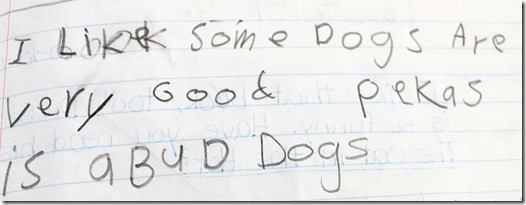 I Likek Some Dogs Are
very Good pekas
is aBuD Dogs